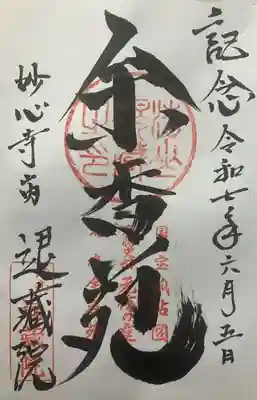 記念 令和七年六月五日
余香苑
妙心寺内 退蔵院